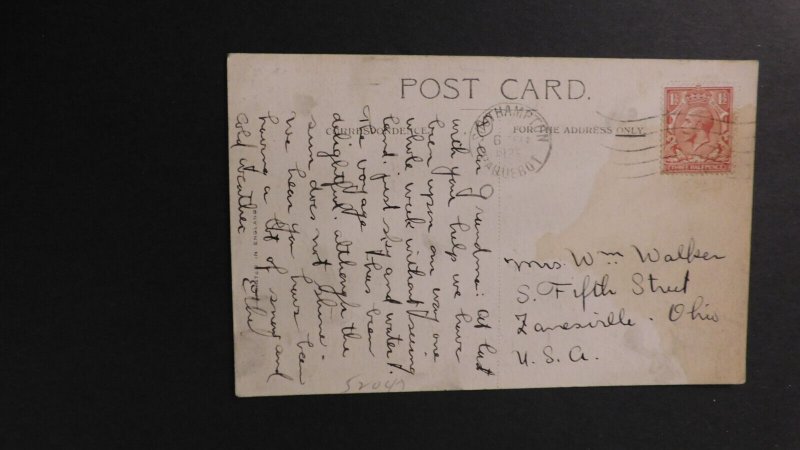 POST CARD.
CORRESPONDENCE
FOR THE ADDRESS ONLY
SOUTHAMPTON
PAQUEBOT
1½ 1½
THREE HALFPENCE
Dear Grandma: At last
with your help we have
been upon our way one
whole week without seeing
land, just sky and water.
The voyage has been
delightful although the
sun does not shine.
We hear you have been
having a lot of snow and
cold weather
Mrs. Wm Walker
S. Fifth Street
Zanesville. Ohio
U.S.A.
52047